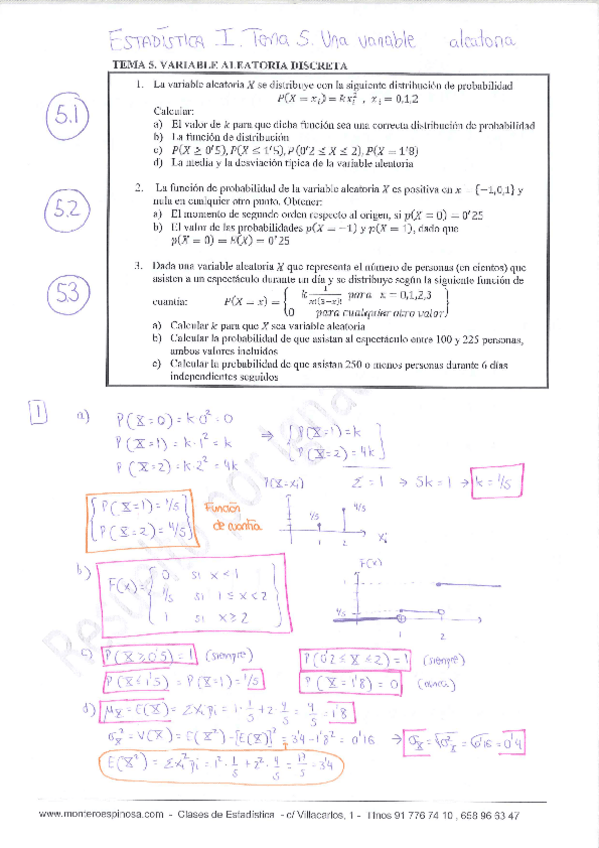 ESTADÍSTICA I. Tema 5. Una variable aleatoria
TEMA 5. VARIABLE ALEATORIA DISCRETA
5.1
1. La variable aleatoria X se distribuye con la siguiente distribución de probabilidad
P(X = xᵢ) = kxᵢ² , xᵢ = 0,1,2
Calcular:
a) El valor de k para que dicha función sea una correcta distribución de probabilidad
b) La función de distribución
c) P(X ≥ 0'5), P(X ≤ 1'5), P(0'2 ≤ X ≤ 2), P(X = 1'8)
d) La media y la desviación típica de la variable aleatoria
5.2
2. La función de probabilidad de la variable aleatoria X es positiva en x = {−1,0,1} y
nula en cualquier otro punto. Obtener:
a) El momento de segundo orden respecto al origen, si p(X = 0) = 0'25
b) El valor de las probabilidades p(X = −1) y p(X = 1), dado que
p(X = 0) = E(X) = 0'25
5.3
3. Dada una variable aleatoria X que representa el número de personas (en cientos) que
asisten a un espectáculo durante un día y se distribuye según la siguiente función de
cuantía: P(X = x) = { k 1/(x!(3−x)!) para x = 0,1,2,3
0 para cualquier otro valor }
a) Calcular k para que X sea variable aleatoria
b) Calcular la probabilidad de que asistan al espectáculo entre 100 y 225 personas,
ambos valores incluidos
c) Calcular la probabilidad de que asistan 250 o menos personas durante 6 días
independientes seguidos
1 a) P(X=0) = k·0² = 0
P(X=1) = k·1² = k ⇒ { P(X=1) = k
P(X=2) = k·2² = 4k P(X=2) = 4k }
Σ = 1 → 5k = 1 → k = 1/5
{ P(X=1) = 1/5
P(X=2) = 4/5 }
Función
de cuantía
P(X=xᵢ)
1/5 4/5
1 2 xᵢ
b) F(x) = { 0 si x < 1
1/5 si 1 ≤ x < 2
1 si x ≥ 2 }
F(x)
1
1/5
1 2
c) P(X ≥ 0'5) = 1 (siempre) P(0'2 ≤ X ≤ 2) = 1 (siempre)
P(X ≤ 1'5) = P(X=1) = 1/5 P(X = 1'8) = 0 (nunca)
d) μx = E(X) = Σxᵢpᵢ = 1·1/5 + 2·4/5 = 9/5 = 1'8
σx² = V(X) = E(X²) − [E(X)]² = 3'4 − 1'8² = 0'16 → σx = √σ²x = √0'16 = 0'4
E(X²) = Σxᵢ²pᵢ = 1²·1/5 + 2²·4/5 = 17/5 = 3'4
www.monteroespinosa.com - Clases de Estadística - c/ Villacarlos, 1 - Tlnos 91 776 74 10 , 658 96 63 47